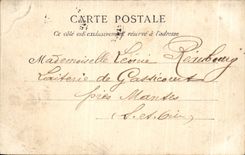 CARTE POSTALE
Ce côté est exclusivement réservé à l'adresse
Mademoiselle Léonie
Laiterie de Gassicourt
près Mantes
(S.-et-Oise)